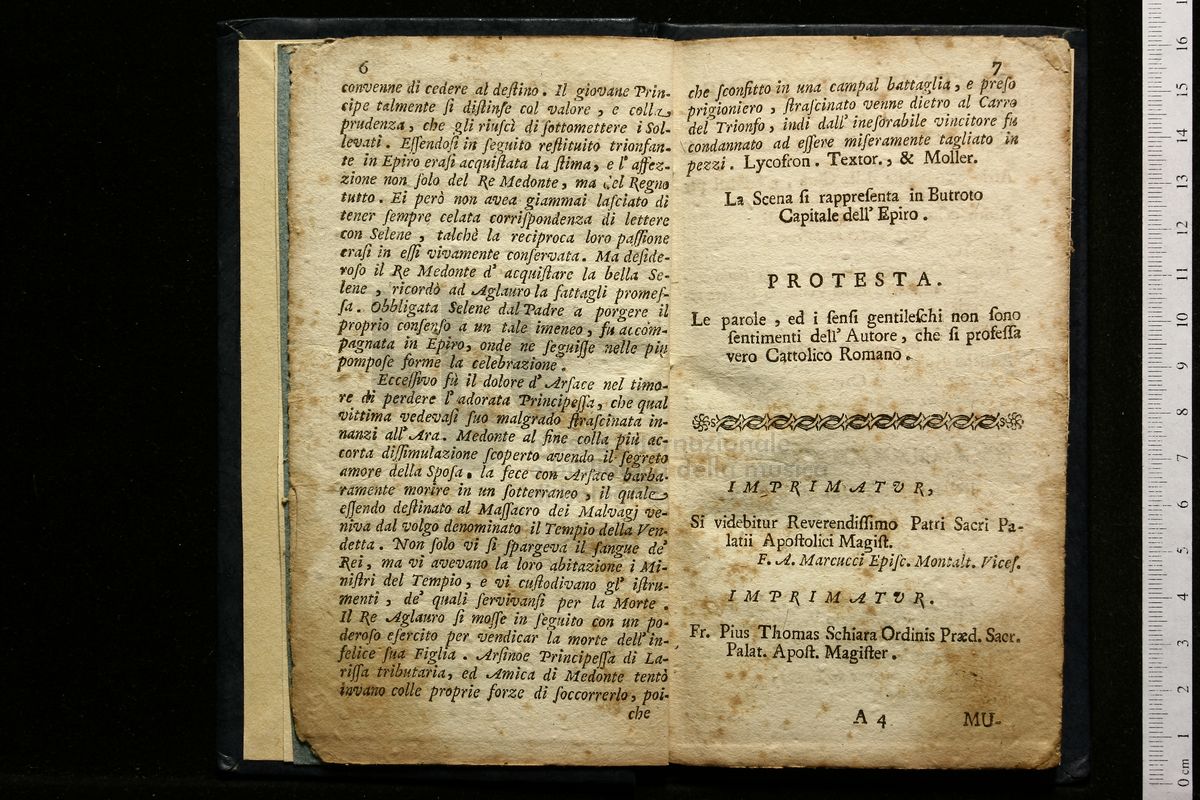 6
convenne di cedere al deſtino. Il giovane Prin-
cipe talmente ſi diſtinſe col valore, e colla
prudenza, che gli riuſcì di ſottomettere i Sol-
levati. Eſſendoſi in ſeguito reſtituito trionfan-
te in Epiro eraſi acquiſtata la ſtima, e l' affez-
zione non ſolo del Re Medonte, ma del Regno
tutto. Ei però non avea giammai laſciato di
tener ſempre celata corriſpondenza di lettere
con Selene, talchè la reciproca loro paſſione
eraſi in eſſi vivamente conſervata. Ma deſide-
roſo il Re Medonte d' acquiſtare la bella Se-
lene, ricordò ad Aglauro la fattagli promeſ-
ſa. Obbligata Selene dal Padre a porgere il
proprio conſenſo a un tale imeneo, fu accom-
pagnata in Epiro, onde ne ſeguiſſe nelle più
pompoſe forme la celebrazione.
Ecceſſivo fù il dolore d' Arſace nel timo-
re di perdere l' adorata Principeſſa, che qual
vittima vedevaſi ſuo malgrado ſtraſcinata in-
nanzi all' Ara. Medonte al fine colla più ac-
corta diſſimulazione ſcoperto avendo il ſegreto
amore della Spoſa, la fece con Arſace barba-
ramente morire in un ſotterraneo, il quale
eſſendo deſtinato al Maſſacro dei Malvagj ve-
niva dal volgo denominato il Tempio della Ven-
detta. Non ſolo vi ſi ſpargeva il ſangue de'
Rei, ma vi avevano la loro abitazione i Mi-
niſtri del Tempio, e vi cuſtodivano gl' iſtru-
menti, de' quali ſervivanſi per la Morte.
Il Re Aglauro ſi moſſe in ſeguito con un po-
deroſo eſercito per vendicar la morte dell' in-
felice ſua Figlia. Arſinoe Principeſſa di La-
riſſa tributaria, ed Amica di Medonte tentò
invano colle proprie forze di ſoccorrerlo, poi-
che
7
che ſconfitto in una campal battaglia, e preſo
prigioniero, ſtraſcinato venne dietro al Carro
del Trionfo, indi dall' ineſorabile vincitore fu
condannato ad eſſere miſeramente tagliato in
pezzi. Lycofron. Textor., & Moller.
La Scena ſi rappreſenta in Butroto
Capitale dell' Epiro.
PROTESTA.
Le parole, ed i ſenſi gentileſchi non ſono
ſentimenti dell' Autore, che ſi profeſſa
vero Cattolico Romano.
nazionale
della musica
IMPRIMATUR,
Si videbitur Reverendiſſimo Patri Sacri Pa-
latii Apoſtolici Magiſt.
F. A. Marcucci Epiſc. Montalt. Viceſ.
IMPRIMATUR.
Fr. Pius Thomas Schiara Ordinis Præd. Sacr.
Palat. Apoſt. Magiſter.
A 4 MU-
0 cm 1 2 3 4 5 6 7 8 9 10 11 12 13 14 15 16